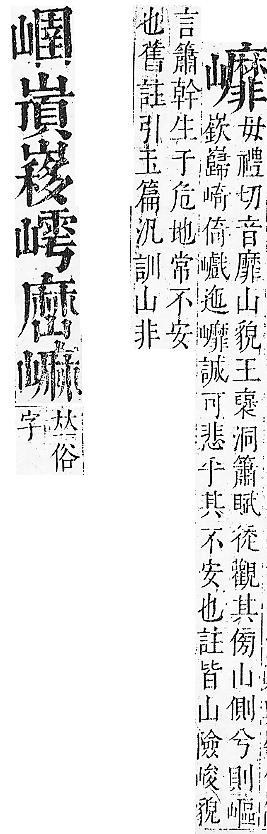 㠧
毋禮切音靡山貌王襃洞簫賦徒觀其傍山側兮則嶇
嶔巋崎倚巇迤㠧誠可悲乎其不安也註皆山險峻貌
言簫幹生于危地常不安
也舊註引玉篇汎訓山非
𠀤俗
字